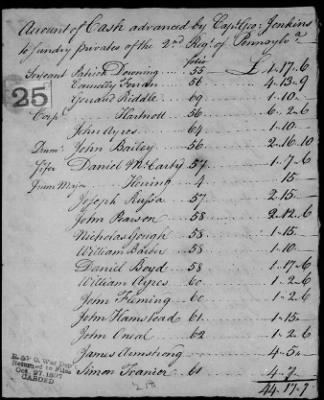 Amount of Cash advanced by Capt Geo: Jenkins
to Sundry privates of the 2nd Regt of Pennsylva
folio
Serjeant Patrick Downing 55 £ 1.17.6
Connolly 56 4.13.9
Gerrard Riddle 69 1.10.
Corpl Hartnott 56 6.2.6
John Ayres 64 1.10
Drumr John Bailey 56 2.16.10
fifer Daniel McCarty 57 1.7.6
Drum Major Hening 4 15
Joseph Russa 57 2.15.
John Pearson 58 2.12.6
Nicholas Gough 58 1.15
William Barber 58 1.10
Daniel Boyd 58 1.17.6
William Ayres 60 1.2.6
John Fleming 60 1.2.6
John Hamstead 61 1.15.
John Oneal 62 1.2.6
James Armstrong 4.5.
Simon Franier 61 4.7.
44.17.7
25
R. & P. O. War Dept.
Returned to Files
Oct. 27, 1897
CARDED